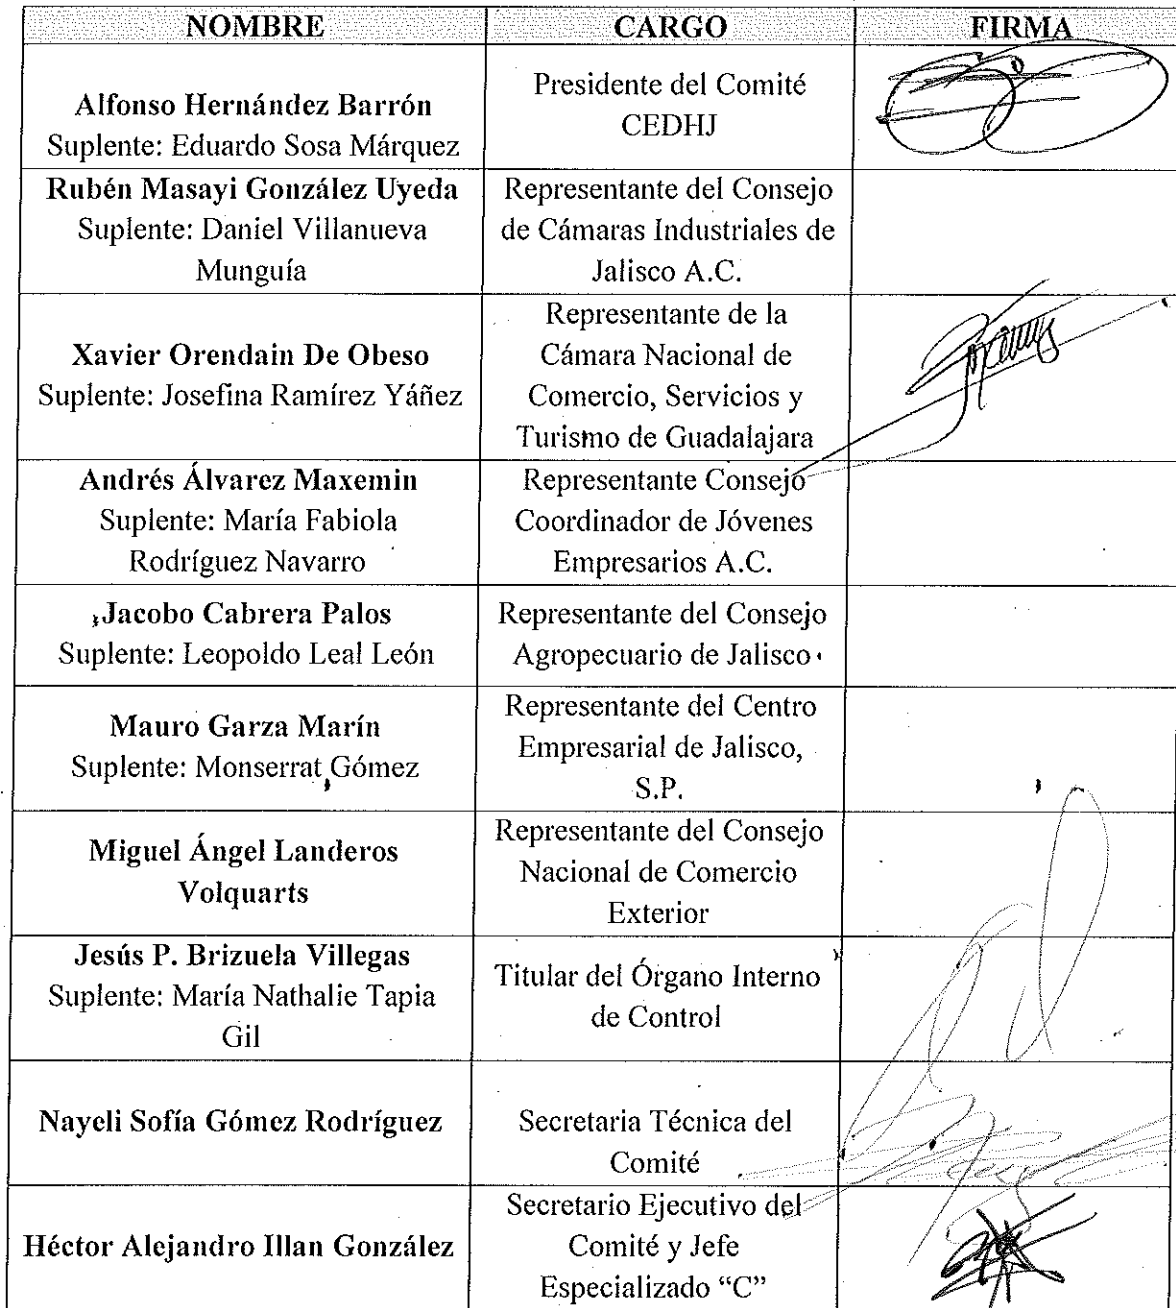 NOMBRE CARGO FIRMA
Alfonso Hernández Barrón
Suplente: Eduardo Sosa Márquez
Presidente del Comité
CEDHJ
Rubén Masayi González Uyeda
Suplente: Daniel Villanueva
Munguía
Representante del Consejo
de Cámaras Industriales de
Jalisco A.C.
Xavier Orendain De Obeso
Suplente: Josefina Ramírez Yáñez
Representante de la
Cámara Nacional de
Comercio, Servicios y
Turismo de Guadalajara
Andrés Álvarez Maxemin
Suplente: María Fabiola
Rodríguez Navarro
Representante Consejo
Coordinador de Jóvenes
Empresarios A.C.
Jacobo Cabrera Palos
Suplente: Leopoldo Leal León
Representante del Consejo
Agropecuario de Jalisco
Mauro Garza Marín
Suplente: Monserrat Gómez
Representante del Centro
Empresarial de Jalisco,
S.P.
Miguel Ángel Landeros
Volquarts
Representante del Consejo
Nacional de Comercio
Exterior
Jesús P. Brizuela Villegas
Suplente: María Nathalie Tapia
Gil
Titular del Órgano Interno
de Control
Nayeli Sofía Gómez Rodríguez
Secretaria Técnica del
Comité
Héctor Alejandro Illan González
Secretario Ejecutivo del
Comité y Jefe
Especializado “C”